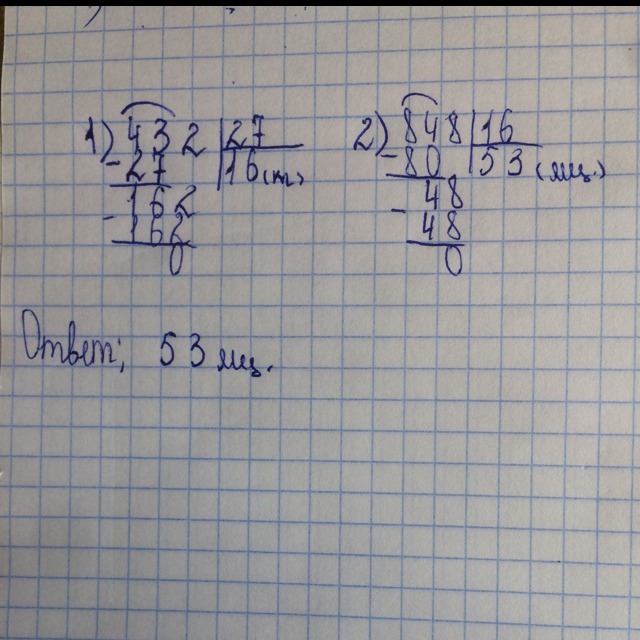 1) 432 | 27
- 27 | 16 (т)
162
- 162
0
2) 848 | 16
- 80 | 53 (ящ.)
48
- 48
0
Ответ; 53 ящ.